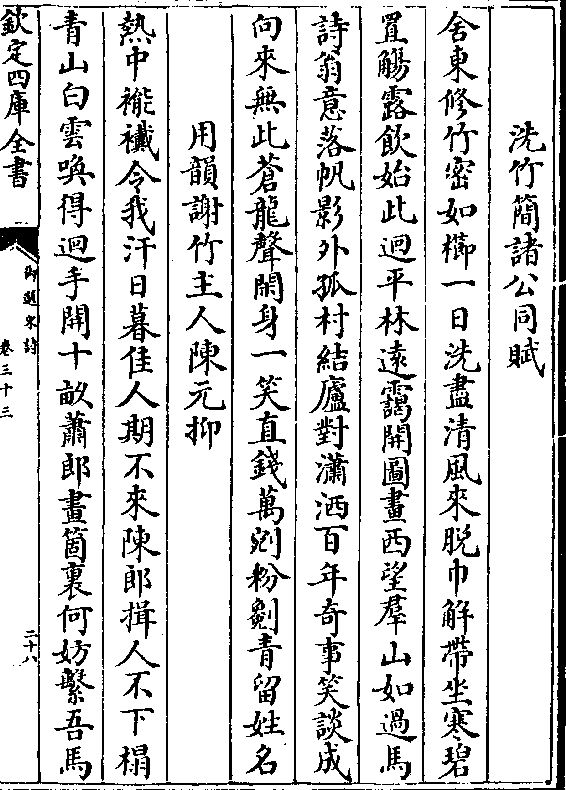 洗竹簡諸公同賦
舍東修竹密如櫛一日洗盡清風來脫巾解帶坐寒碧
置觴露飲始此迴平林遠靄開圖畫西望羣山如過馬
詩翁意落帆影外孤村結廬對瀟洒百年奇事笑談成
向來無此蒼龍聲閒身一笑直錢萬剜粉劖青留姓名
用韻謝竹主人陳元抑
熱中褦襶令我汗日暮佳人期不來陳郎揖人不下榻
青山白雲喚得迴手開十畝蕭郎畫箇裏何妨繫吾馬
欽定四庫全書
御選宋詩
卷三十三
二十八